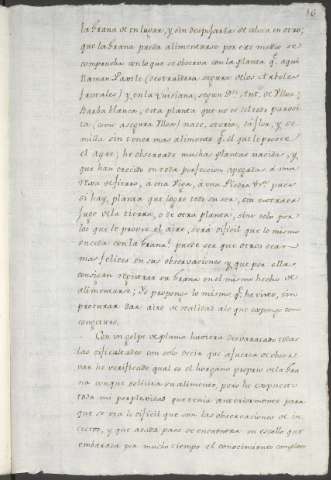 16
la brana de un lugar, y sin despues darla de colocar en otro;
que la brana pueda alimentarse por este medio se
comprueba con lo que se observa con la planta qe. aqui
llaman Paxtle (destruidora segura de los Arboles
frutales) y en la Luisiana, segun Dn. Ant. de Ulloa,
Barba blanca, esta planta que no se cree parasi-
ta (como asegura Ulloa) nace, crece, da flor, y se-
milla sin tener mas alimento qe. el que le provee
el ayre; he observado muchas plantas nacidas, y
que han crecido en toda perfeccion apegadas a una
de a una Viga, a una Piedra &ra. pues
si hay planta que logre todo su ser, sin extraer
jugo de la tierra, o de otra planta, sino solo por
lo que le provee el aire, será dificil que lo mismo
suceda con la brana? puede ser que otros sean
mas felices en sus observaciones y que por ellas
consigan registrar su brana en el mismo hecho de
alimentarse; Yo propongo lo mismo qe. he visto, sin
procurar dar aire de realidad a lo que expongo como
conjetura.
Con un golpe de pluma huviera desbaratado todas
las dificultades con solo decir que a fuerza de obser-
var he verificado qual es el horgano propio de la bra
na con que solicita su alimento, pero he expuesto
toda mi perplexidad que tenia anteriormente para
que se vea lo dificil que son las observaciones de in-
sectos, y que acada paso se encuentra un escollo que
embaraza por mucho tiempo el conocimiento completo